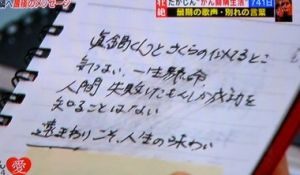 へ最後のメッセージ
壮絶
たかじん"がん闘病生活"741日
最期の歌声・別れの言葉
眞鍋くんとさくらの似てるとこ
気はない 一生懸命
人間 失敗したもんしか成功を
知ることはない
遠まわりこそ、人生の味わい
愛